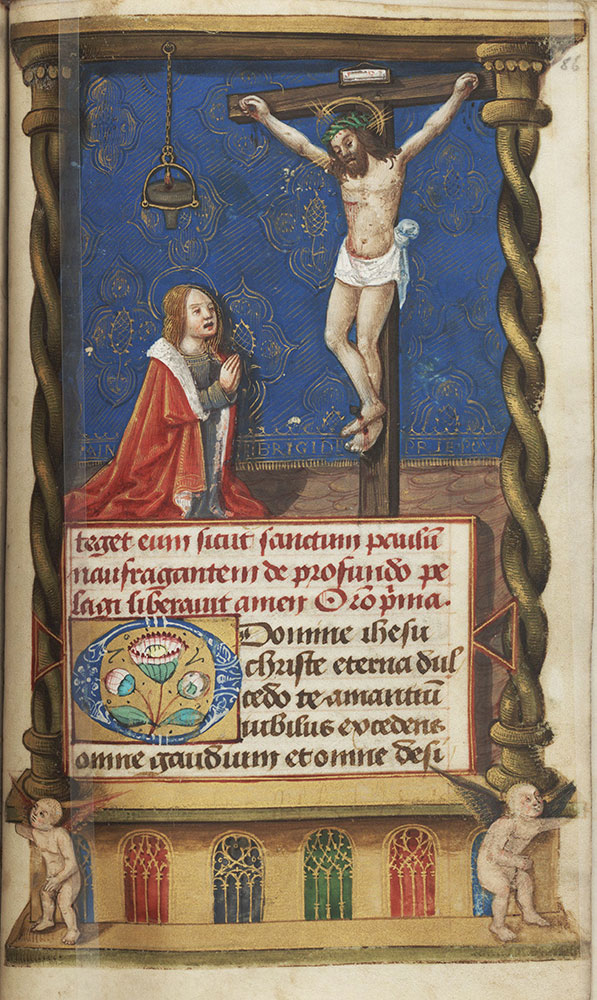 86
BRIGIDE
teget eum sicut sanctum paulū
naufragantem de profundo pe
lagi liberauit amen Orō p̄ma.
O Domine ihesu
christe eterna dul
cedo te amantiū
iubilus excedens
omne gaudium et omne desi